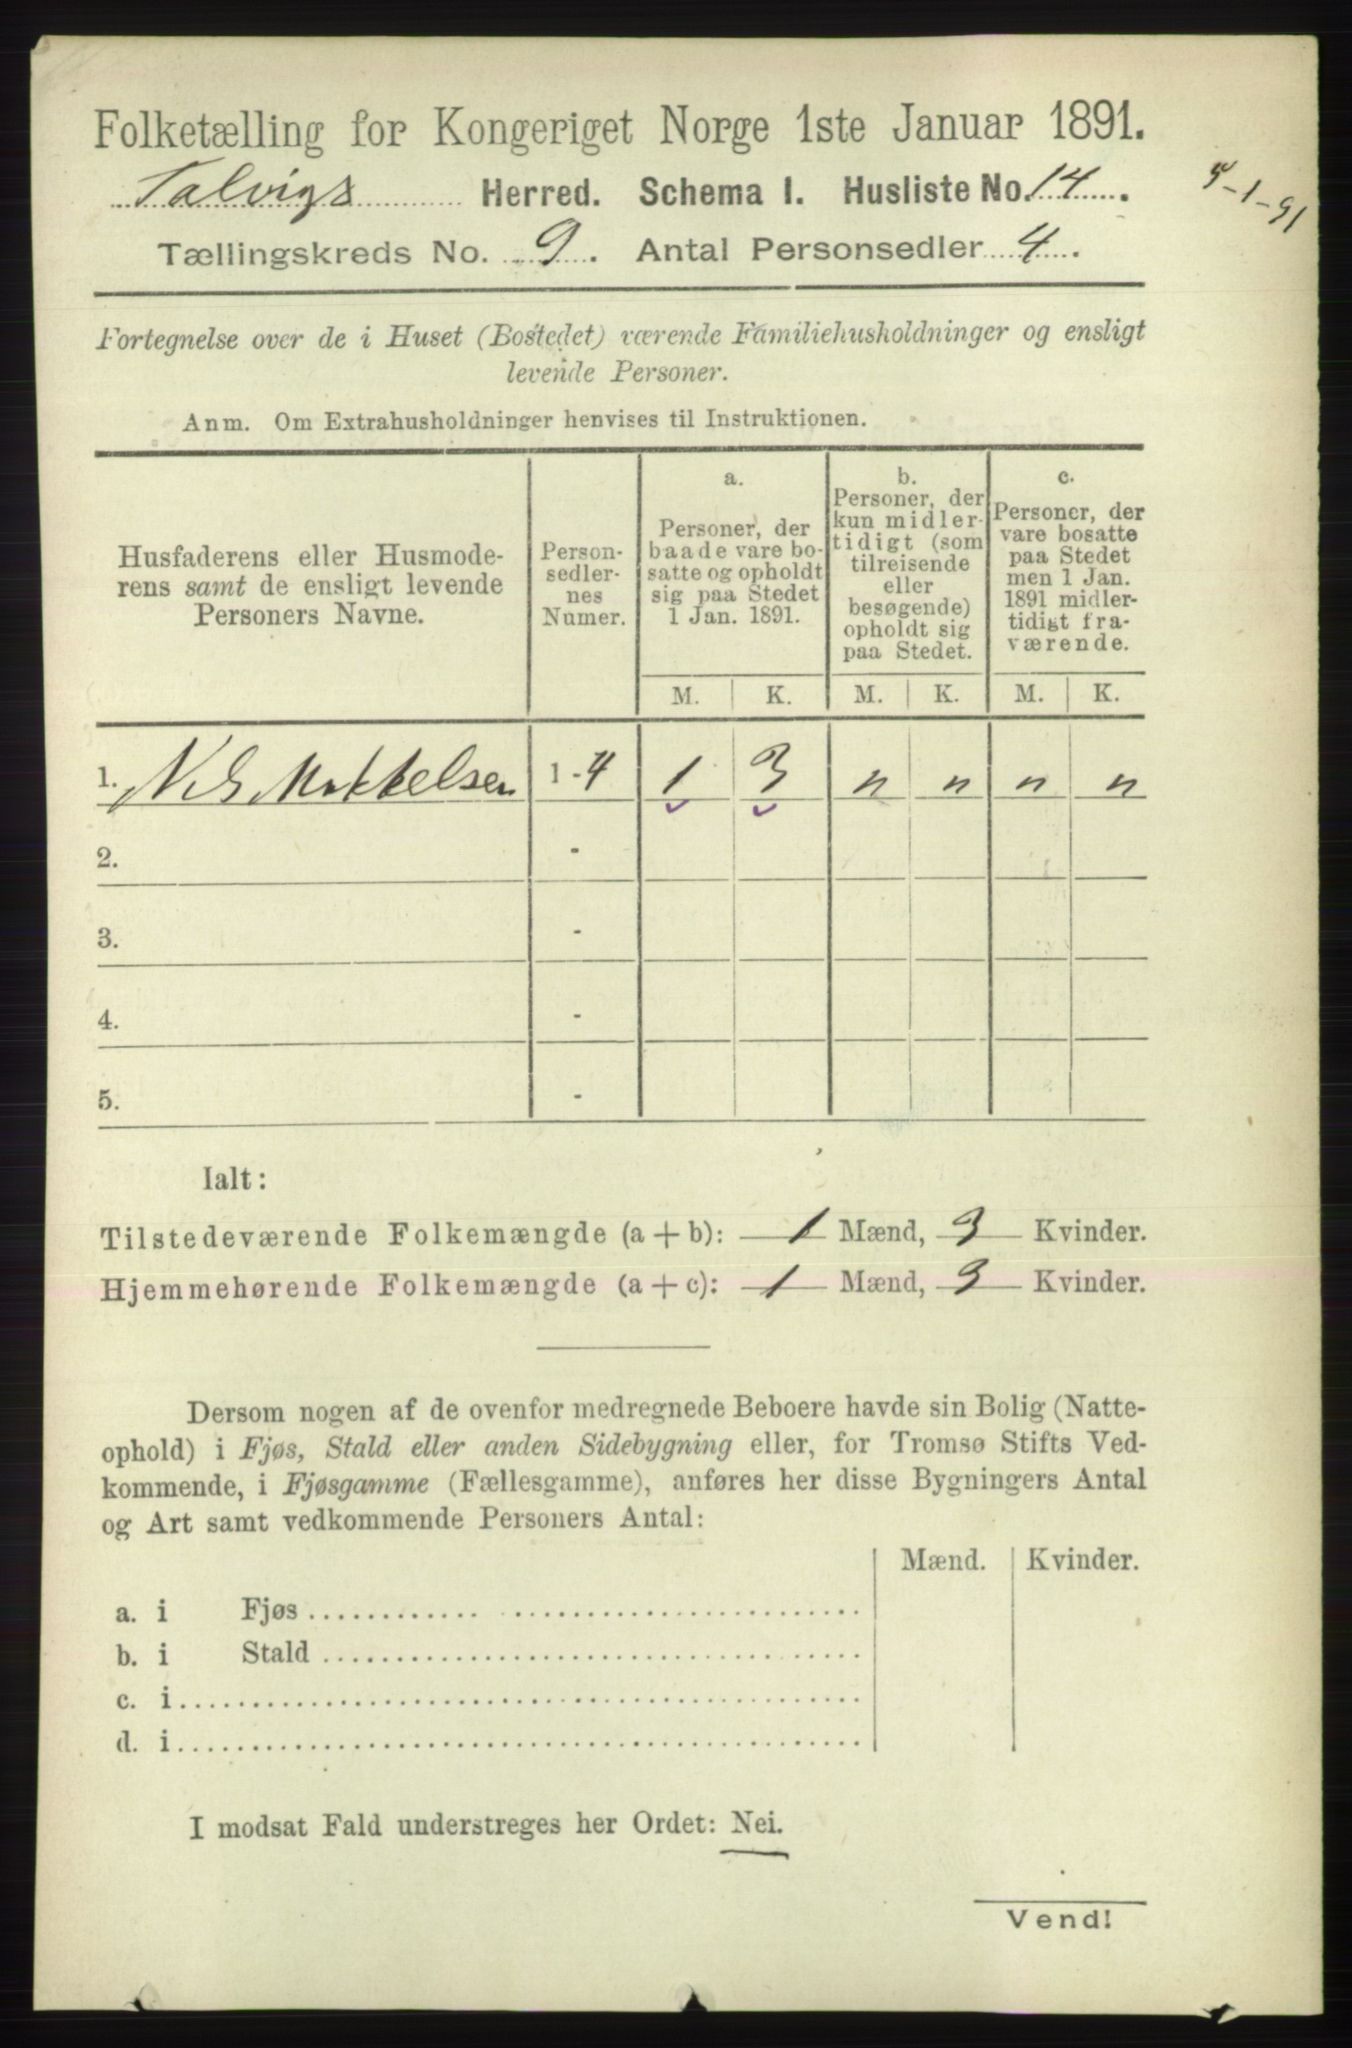 Folketælling for Kongeriget Norge 1ste Januar 1891.
Talvigs Herred. Schema I. Husliste No. 14.
5-1-91
Tællingskreds No. 9. Antal Personsedler 4.
Fortegnelse over de i Huset (Bostedet) værende Familiehusholdninger og ensligt
levende Personer.
Anm. Om Extrahusholdninger henvises til Instruktionen.
Husfaderens eller Husmode-
rens samt de ensligt levende
Personers Navne.
Person-
sedler-
nes
Numer.
a.
Personer, der
baade vare bo-
satte og opholdt
sig paa Stedet
1 Jan. 1891.
b.
Personer, der
kun midler-
tidigt (som
tilreisende
eller
besøgende)
opholdt sig
paa Stedet.
c.
Personer, der
vare bosatte
paa Stedet
men 1 Jan.
1891 midler-
tidigt fra-
værende.
M. K. M. K. M. K.
1. Mikkelsen 1-4 1 3 „ „ „ „
2. -
3. -
4. -
5. -
Ialt:
Tilstedeværende Folkemængde (a + b): 1 Mænd, 3 Kvinder.
Hjemmehørende Folkemængde (a + c): 1 Mænd, 3 Kvinder.
Dersom nogen af de ovenfor medregnede Beboere havde sin Bolig (Natte-
ophold) i Fjøs, Stald eller anden Sidebygning eller, for Tromsø Stifts Ved-
kommende, i Fjøsgamme (Fællesgamme), anføres her disse Bygningers Antal
og Art samt vedkommende Personers Antal:
Mænd. Kvinder.
a. i Fjøs
b. i Stald
c. i
d. i
I modsat Fald understreges her Ordet: Nei.
Vend!